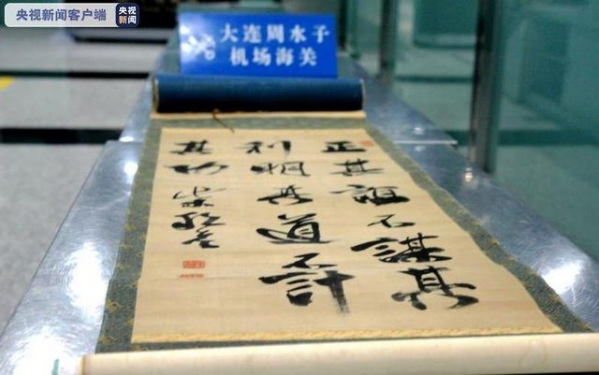 央视新闻客户端
央视
新闻
大连周水子
机场海关
正其誼不謀其
利明其道不計
其功